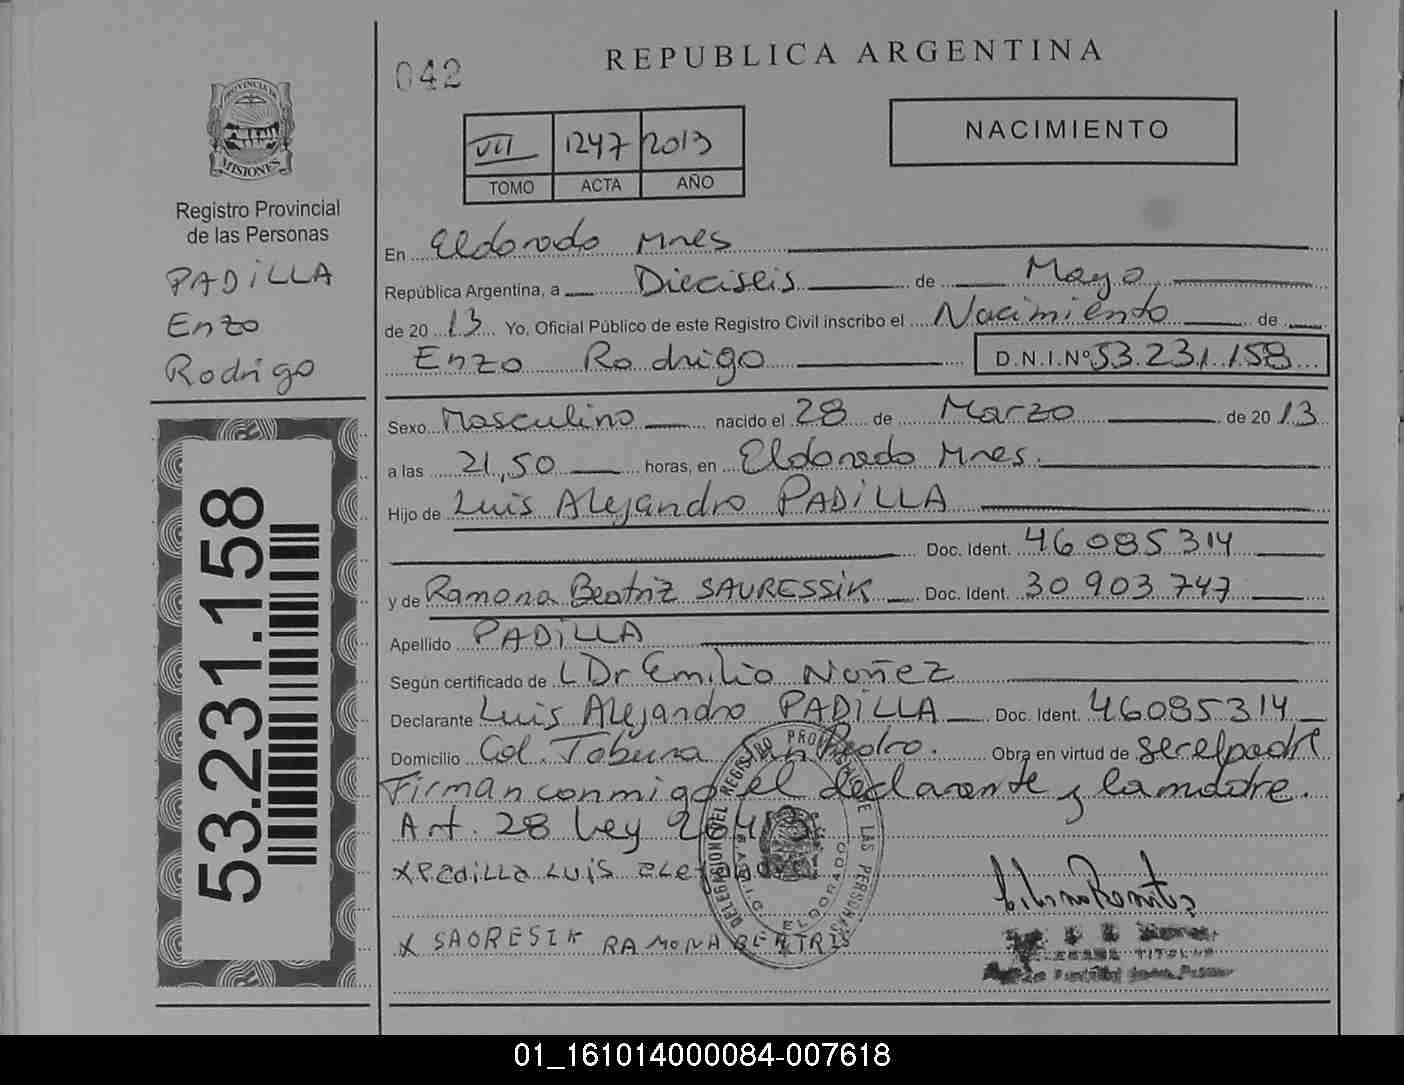 042
REPUBLICA ARGENTINA
PROVINCIA DE
MISIONES
Registro Provincial
de las Personas
PADiLLA
Enzo
Rodrigo
53.231.158
VII 1247 2013
TOMO ACTA AÑO
NACIMIENTO
En Eldorado Mnes
República Argentina, a Dieciseis de Mayo
de 2013 Yo, Oficial Público de este Registro Civil inscribo el Nacimiento de
Enzo Rodrigo D.N.I.Nº 53.231.158
Sexo Masculino nacido el 28 de Marzo de 2013
a las 21,50 horas, en Eldorado Mnes.
Hijo de Luis Alejandro PADiLLA
Doc. Ident. 46085314
y de Ramona Beatriz SAURESSiK Doc. Ident. 30 903 747
Apellido PADiLLA
Según certificado de Dr Emilio Nuñez
Declarante Luis Alejandro PADiLLA Doc. Ident. 46085314
Domicilio Col. Pedro. Obra en virtud de ser el padre
Firman conmigo el declarante y la madre.
Art. 28 Ley 26413
x Padilla Luis
x SAORESIK RAMONA BEATRIS
DELEGACION DEL REGISTRO PROVINCIAL DE LAS PERSONAS
ELDORADO
TITULAR
01_161014000084-007618